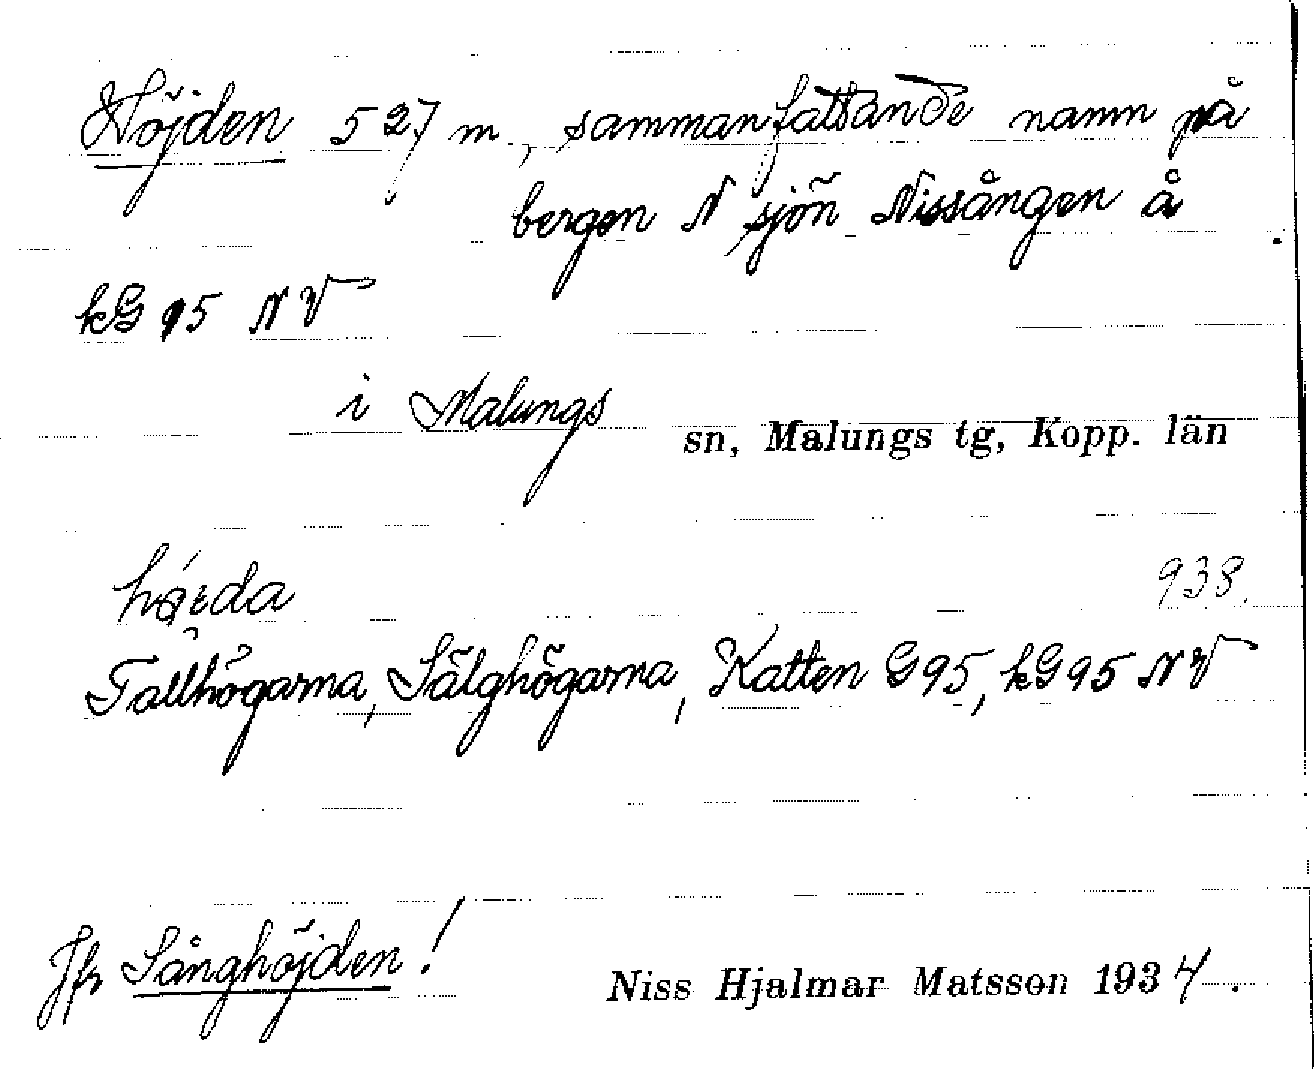 Höjden 527 m, sammanfattande namn på
bergen N sjön Nissången å
kG 95 NV
i Malungs sn, Malungs tg, Kopp. län
938.
Tallhögarna, Sälghögarna, Katten G95, kG95 NV
Jfr Sånghöjden!
Niss Hjalmar Matsson 1934.